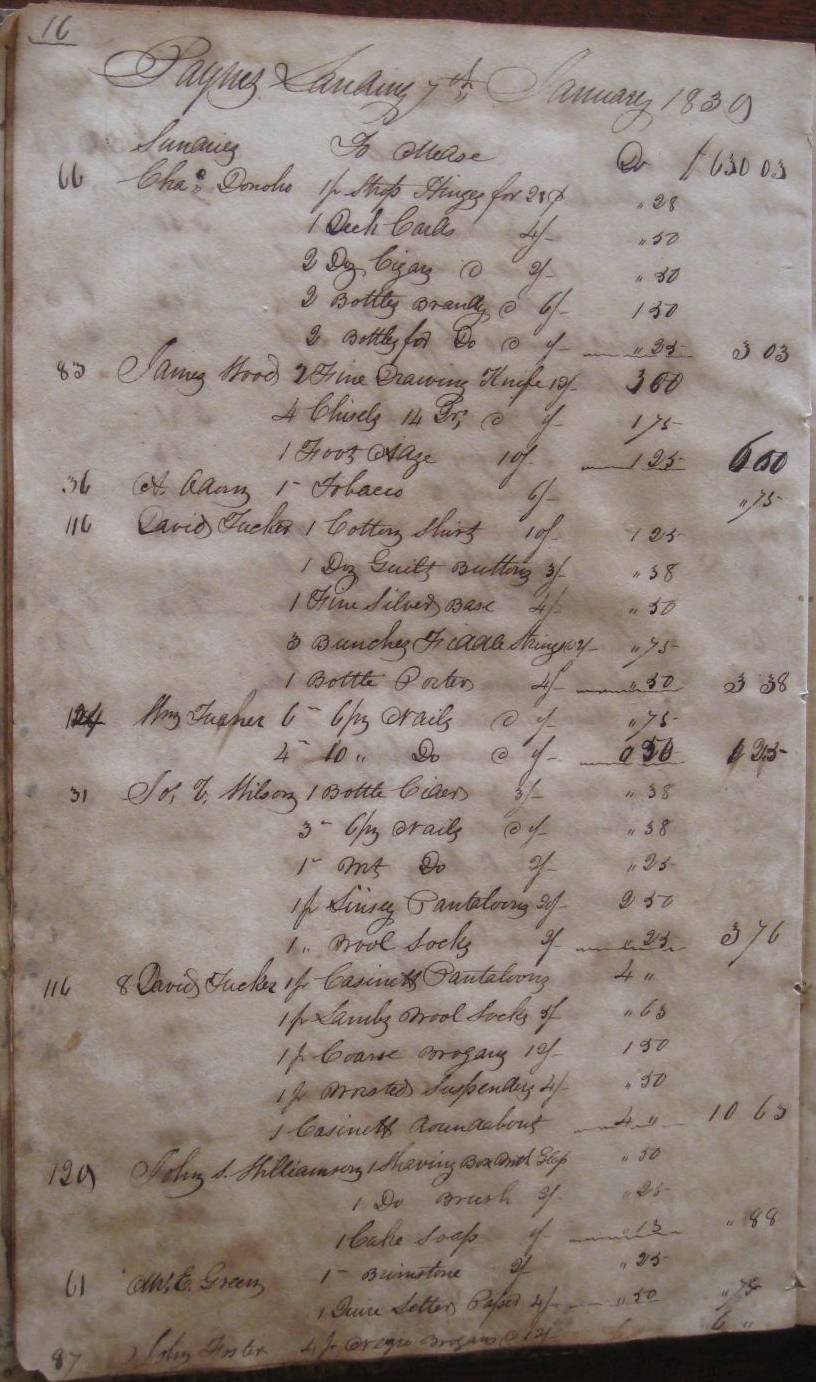 16
Paynes Landing 7th January 1839
Sundries To Mdse Dr $ 630 03
66 Chas Donoho 1 pr Strap Hinges for 28 ¢ " 28
1 Deck Cards 4/- " 50
2 Doz Cigars @ 2/- " 50
2 Bottles Brandy @ 6/- 1 50
2 Bottles for Do @ 1/- " 25 3 03
83 James Wood 2 Fine Drawing Knife 12/- 3 00
4 Chisels 14 Qrs @ 1/- 1 75
1 Foot 10/- 1 25 6 00
36 A. Adams 1 - Tobacco 6/- " 75
116 David Tucker 1 Cotton Shirt 10/- 1 25
1 Doz Guilt Buttons 3/- " 38
1 Fine Silver Base 4/- " 50
3 Bunches Fiddle Strings @ 2/- " 75
1 Bottle Porter 4/- " 50 3 38
124 Wm Tucker 6 - 6py Nails @ 1/- " 75
4 - 10 " Do @ 1/- 0 50 1 25
31 Jos. T. Wilson 1 Bottle Cider 3/- " 38
3 - 6py Nails @ 1/- " 38
1 - Do 2/- " 25
1 pr Linsey Pantaloons 20/- 2 50
1 " Wool Socks 2/- " 25 3 76
116 8 David Tucker 1 pr Casinett Pantaloons 4 "
1 pr Lambs Wool Socks 5/- " 63
1 pr Coarse Brogans 12/- 1 50
1 pr Worsted Suspenders 4/- " 50
1 Casinett Roundabout 4 " 10 63
129 John S. Williamson 1 Shaving Box With " 50
1 Do Brush 2/- " 25
1 Cake Soap 1/- " 13 " 88
61 E. Green 1 - Brimstone 2/- " 25
1 Quire Letter Paper 4/- " 50 " 75
87 John Foster 4 pr Negro Brogans @ 12/- 6 "